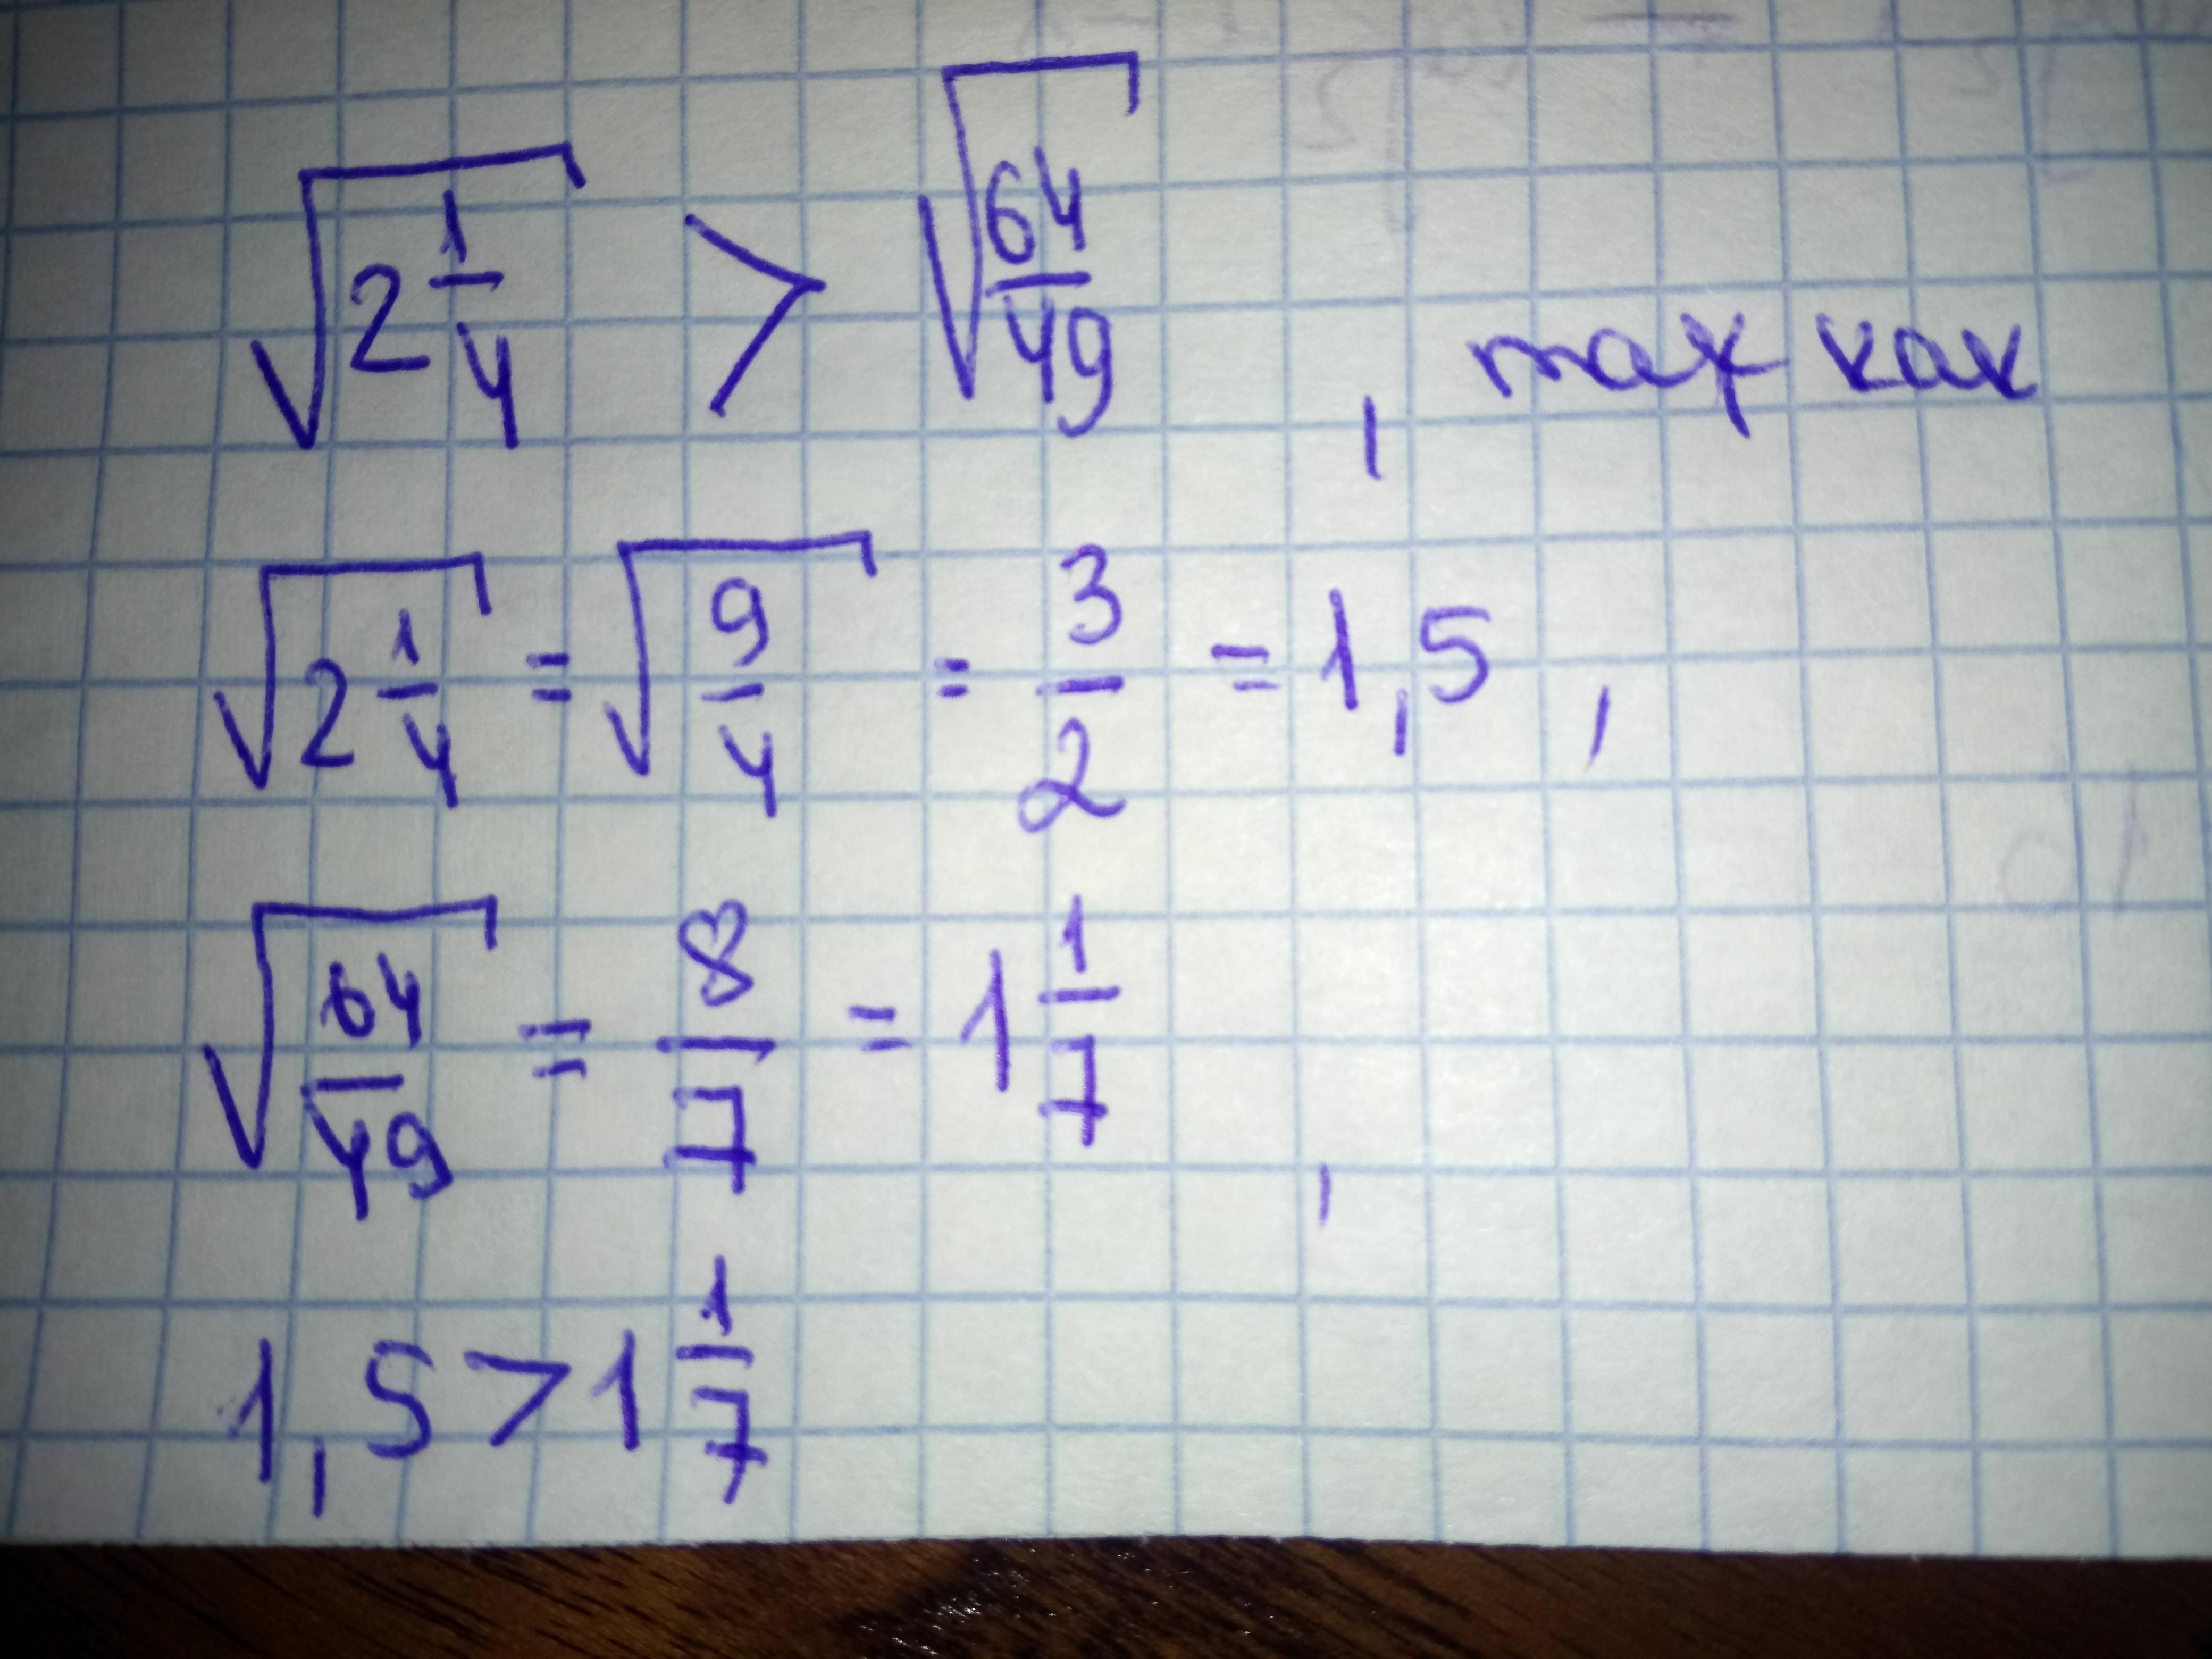 √(2 1/4) > √(64/49) , так как
√(2 1/4) = √(9/4) = 3/2 = 1,5 ,
√(64/49) = 8/7 = 1 1/7 ,
1,5 > 1 1/7